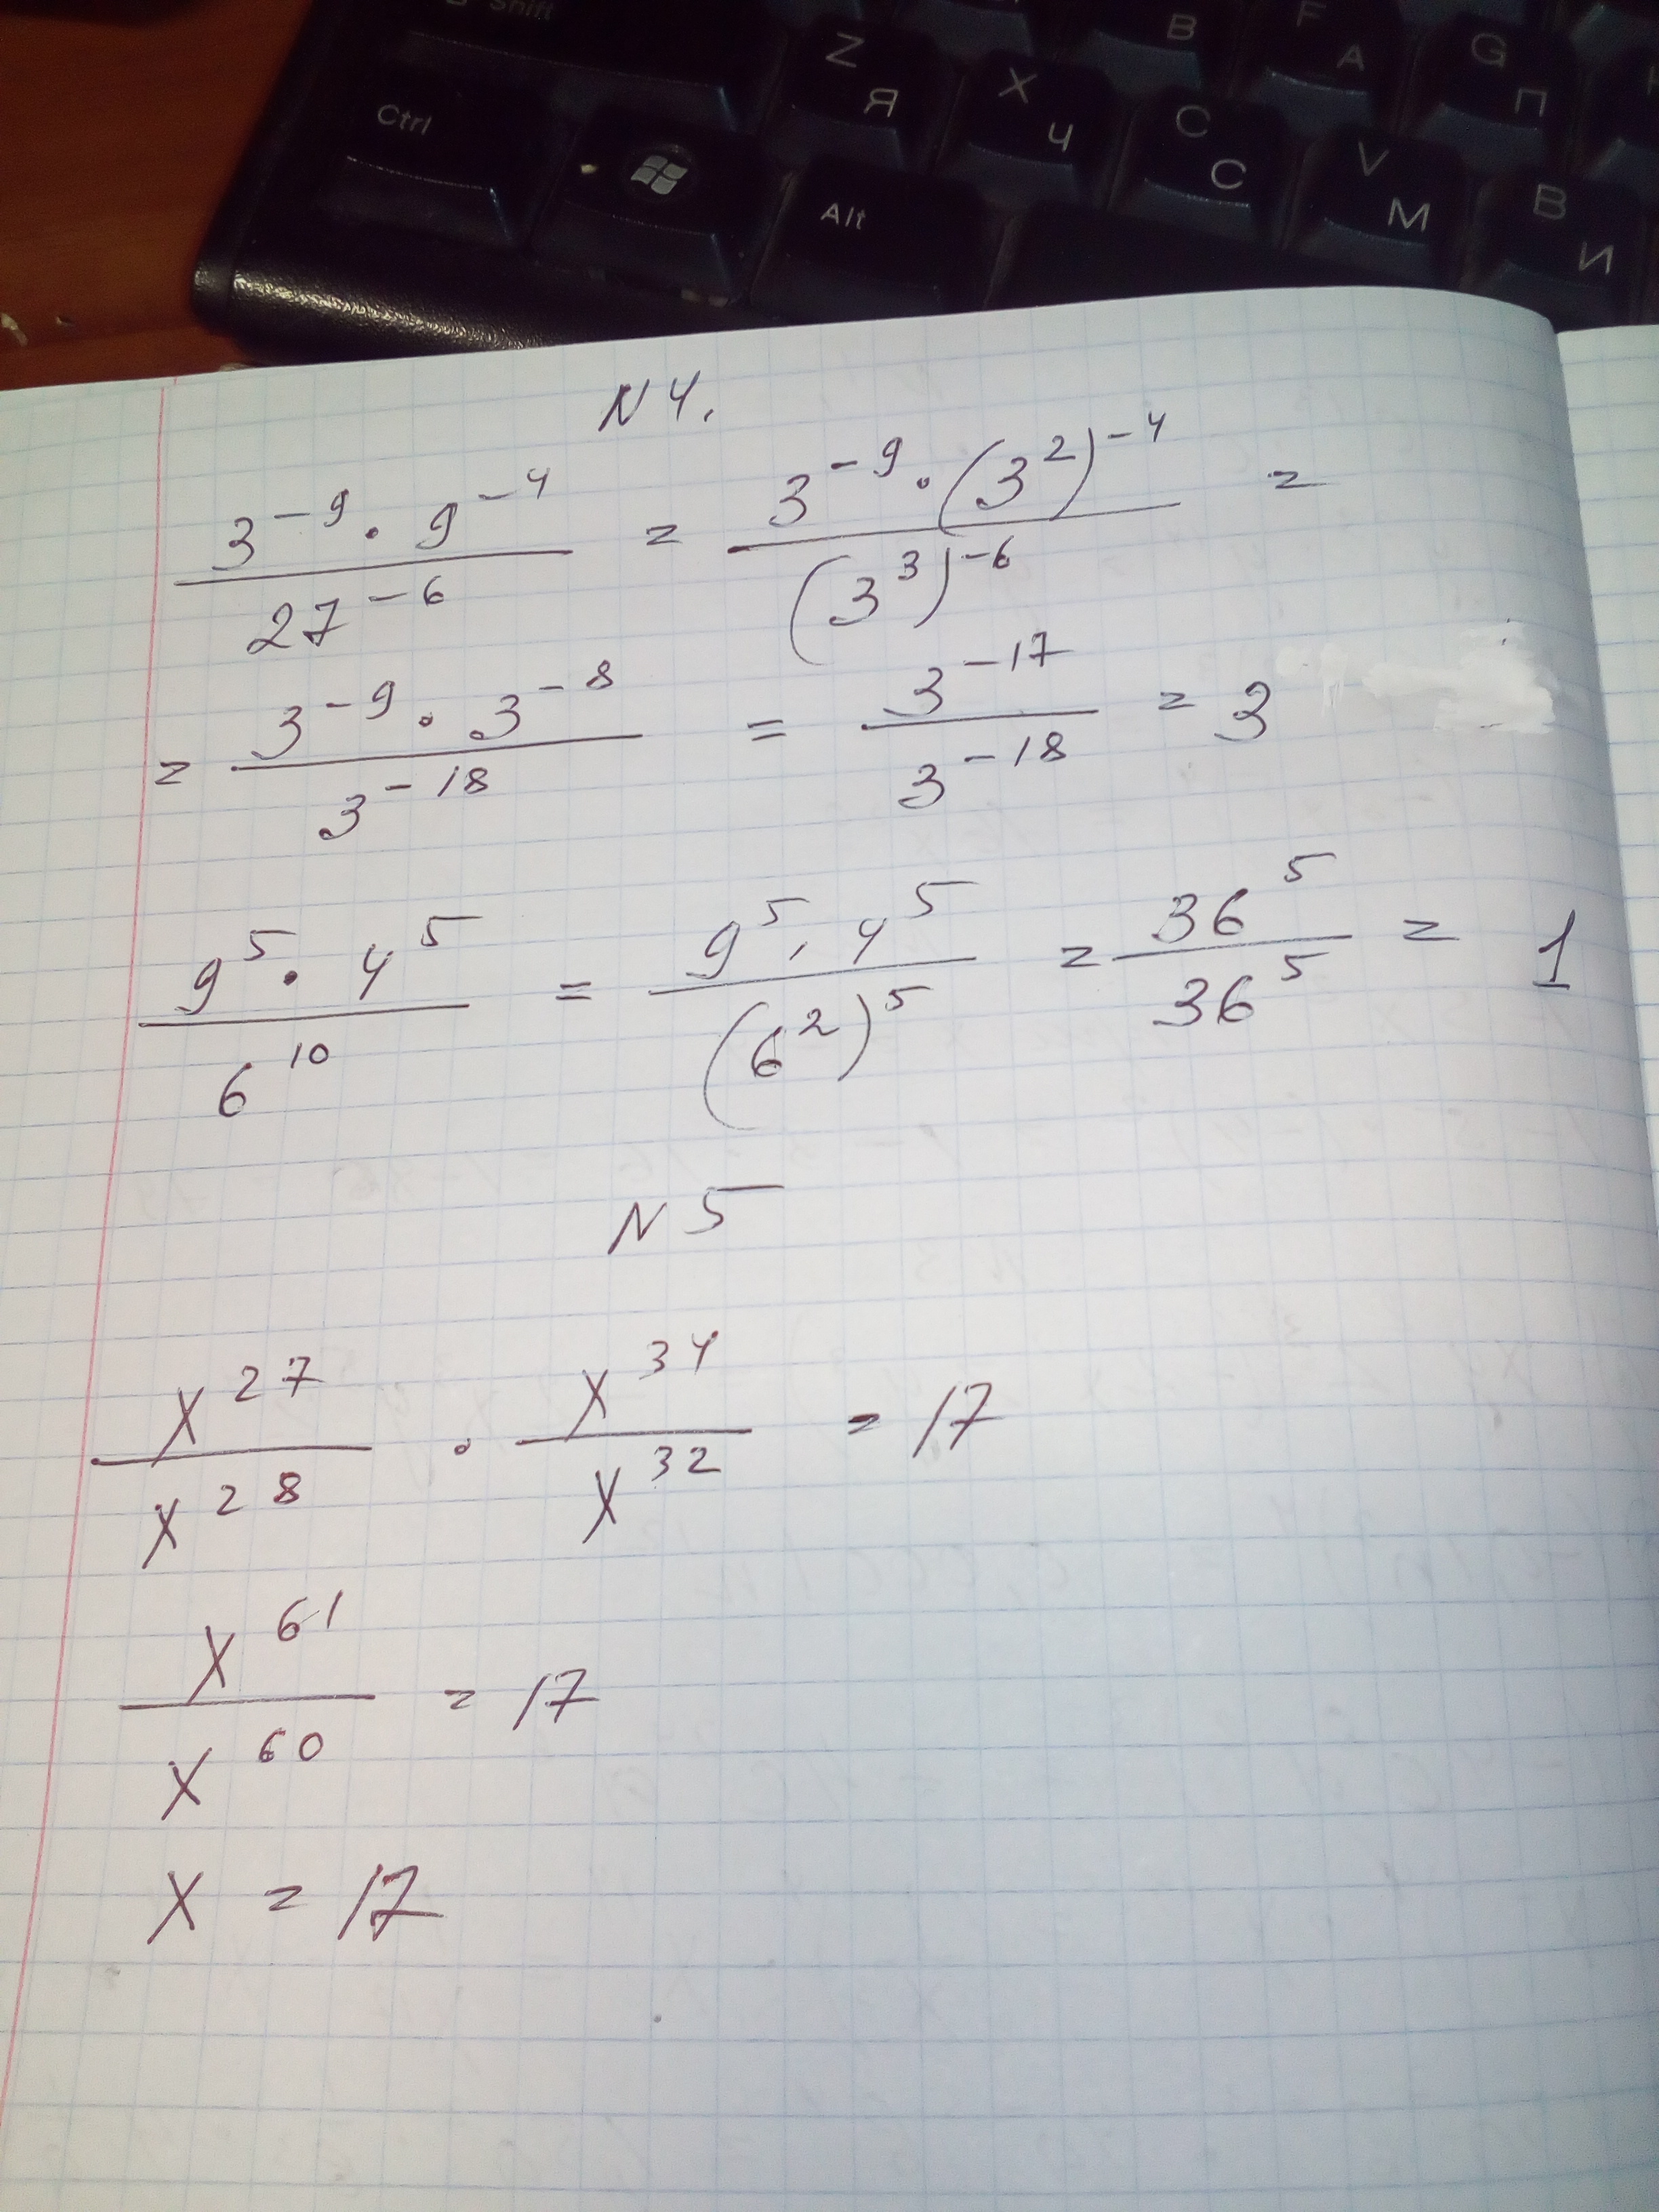 Shift
B F G
A П
Z Я X Ч C С V М B И
Ctrl Alt
N 4.
\frac{3^{-9} \cdot 9^{-4}}{27^{-6}} = \frac{3^{-9} \cdot (3^2)^{-4}}{(3^3)^{-6}} =
= \frac{3^{-9} \cdot 3^{-8}}{3^{-18}} = \frac{3^{-17}}{3^{-18}} = 3
\frac{9^5 \cdot 4^5}{6^{10}} = \frac{9^5 \cdot 4^5}{(6^2)^5} = \frac{36^5}{36^5} = 1
N 5
\frac{x^{27}}{x^{28}} \cdot \frac{x^{34}}{x^{32}} = 17
\frac{x^{61}}{x^{60}} = 17
x = 17